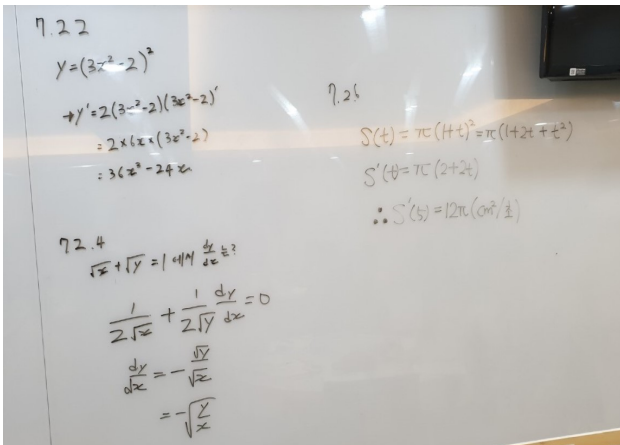 7.22
y=(3x²-2)²
→y'=2(3x²-2)(3x²-2)'
=2×6x×(3x²-2)
=36x³-24x
72.4
√x+√y=1에서 dy/dx는?
1/(2√x) + 1/(2√y) dy/dx = 0
dy/dx = - √y/√x
= -√(y/x)
7.26
S(t)=π(1+t)²=π(1+2t+t²)
S'(t)=π(2+2t)
∴S'(5)=12π(cm²/초)